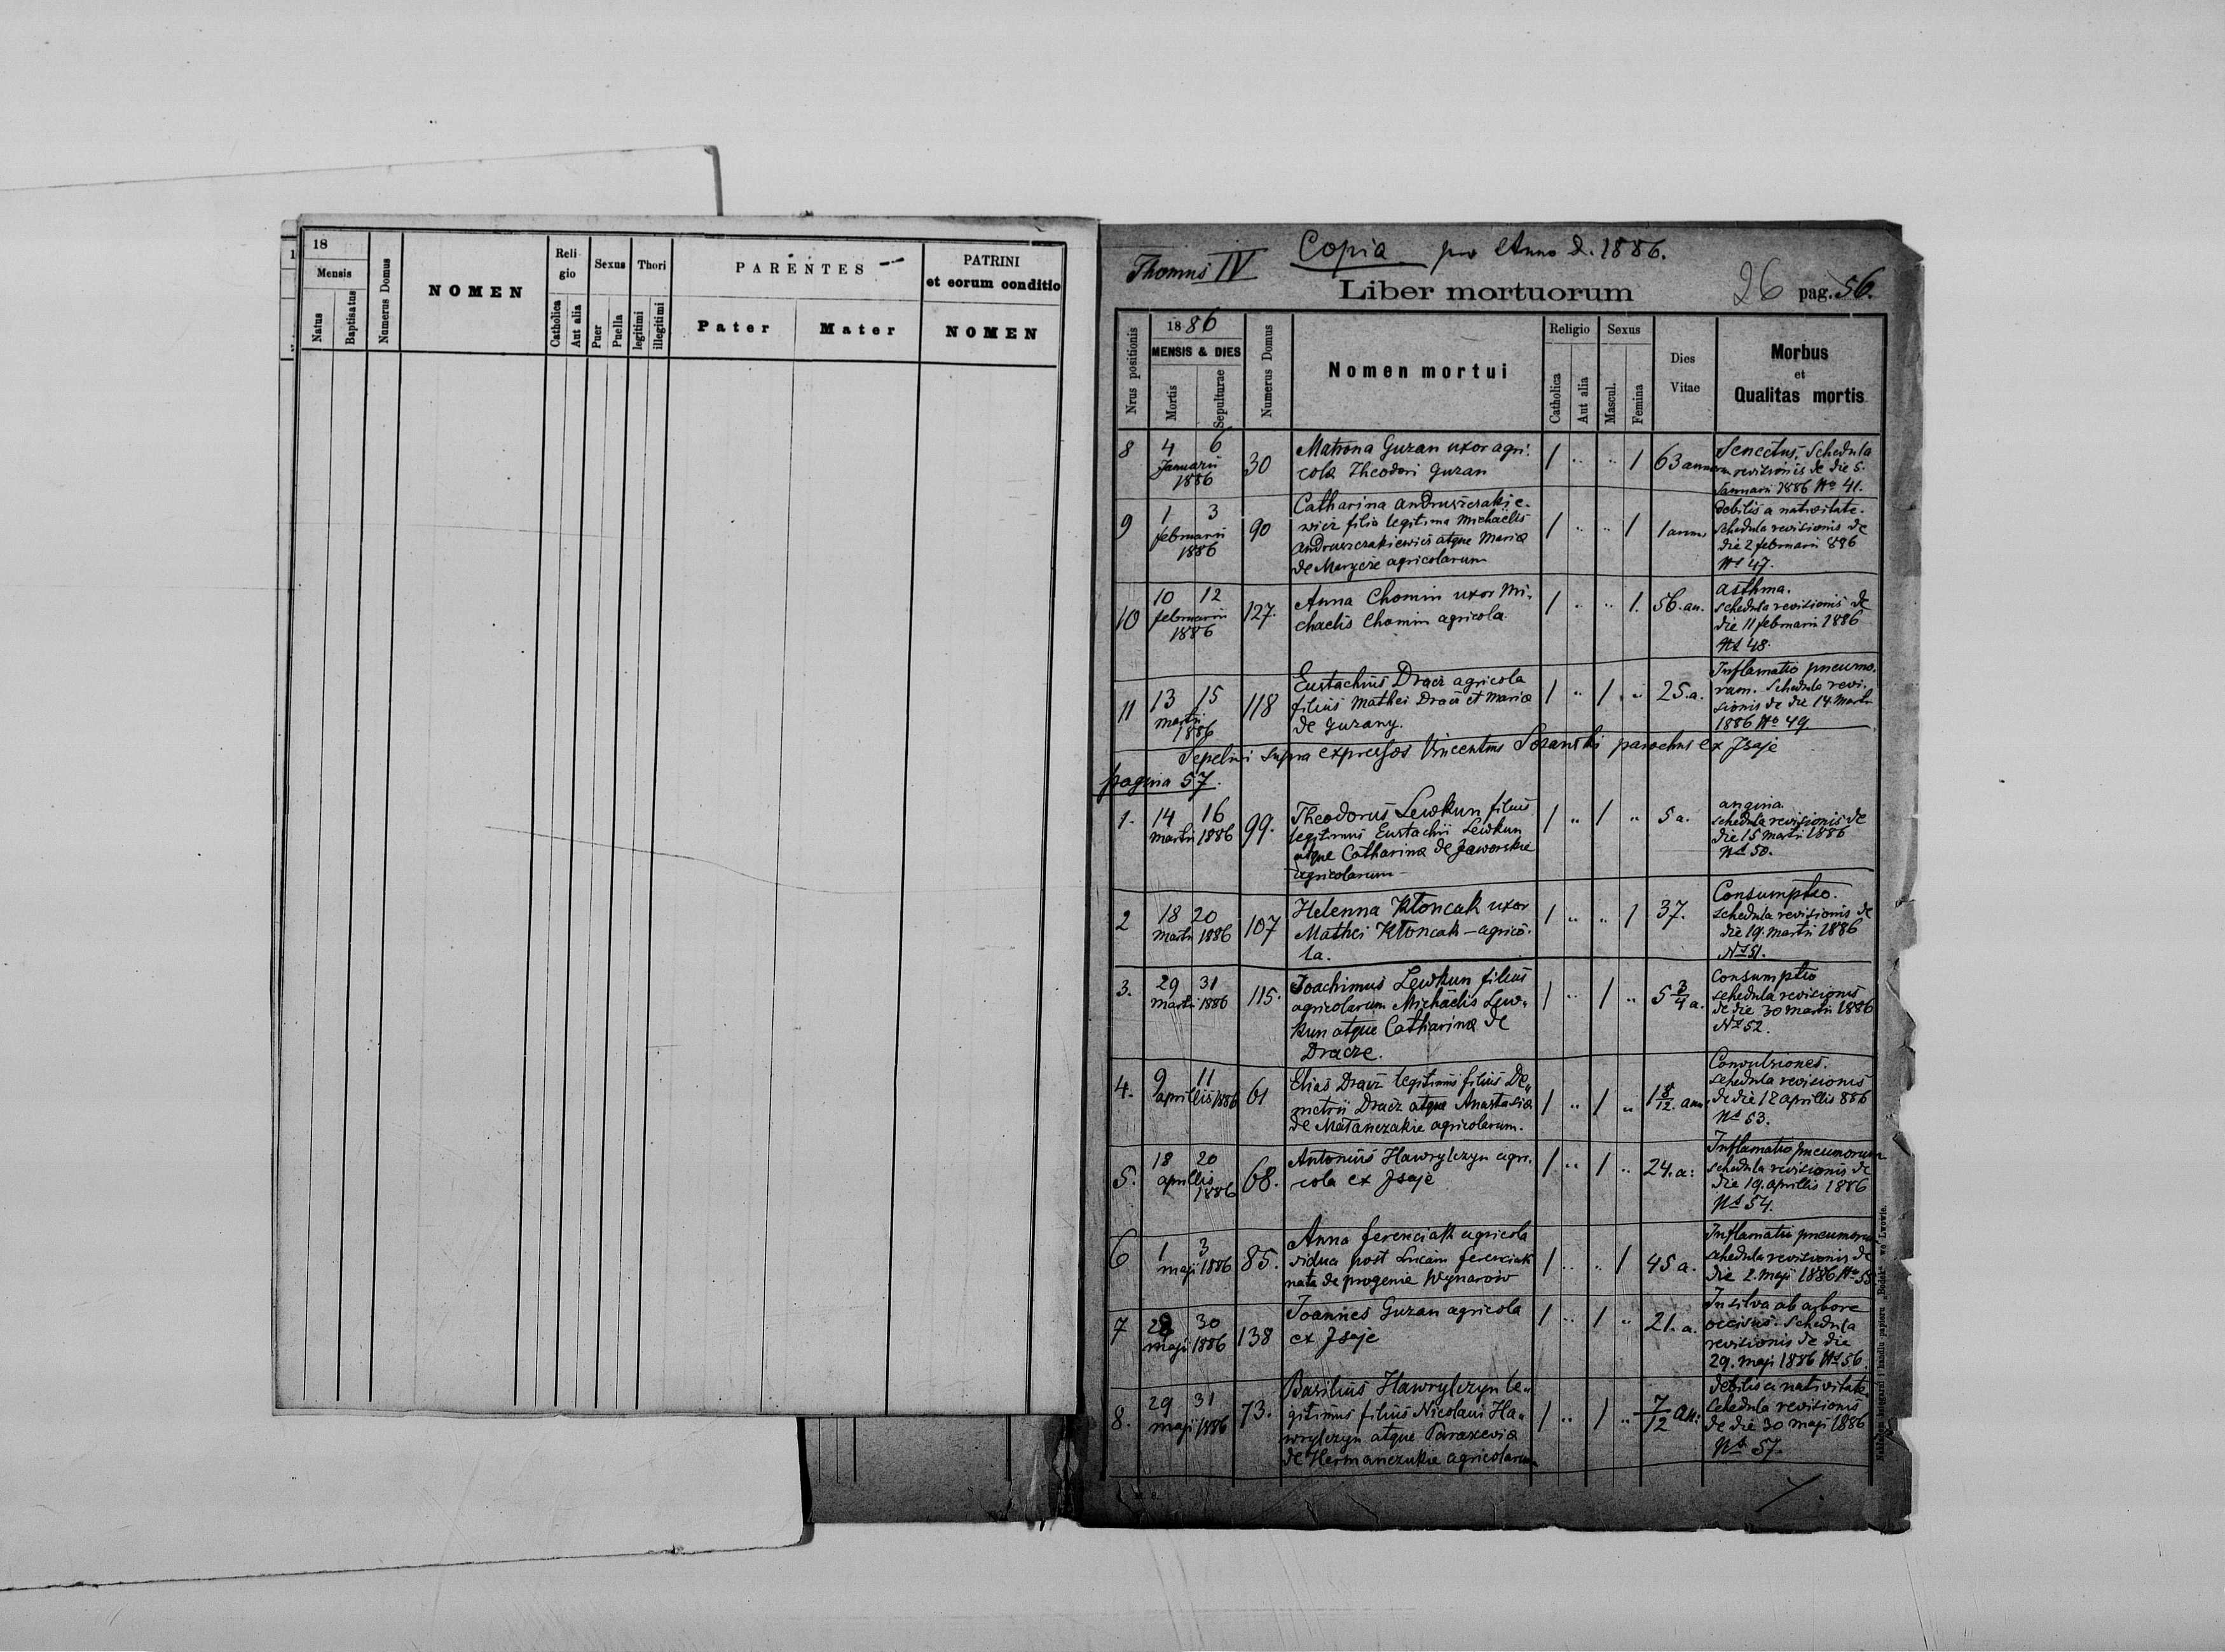 18
Mensis
Natus
Baptisatus
Numerus Domus
NOMEN
Reli
gio
Catholica
Aut alia
Sexus
Puer
Puella
Thori
legitimi
illegitimi
PARENTES
Pater
Mater
PATRINI
et eorum conditio
NOMEN
Thomus IV
Copia pro Anno D. 1886.
Liber mortuorum
26 pag. 56.
Nrus positionis
1886
MENSIS & DIES
Mortis
Sepulturae
Numerus Domus
Nomen mortui
Religio
Catholica
Aut alia
Sexus
Mascul.
Femina
Dies
Vitae
Morbus
et
Qualitas mortis
8
4 6
Januarii
1886
30
Matrona Guzan uxor agri-
cola Theodori Guzan
1 .. .. 1
63 annorum
Senectus, Schedula
revisionis de die 5.
Januarii 1886 No 41.
9
1 3
februarii
1886
90
Catharina Andruwczakie-
wicz filia legitima Michaelis
Andruwczakiewicz atque Maria
de Marycze agricolarum
1 .. .. 1
1 annus
debilis a nativitate.
Schedula revisionis de
die 2 februarii 886
No 47.
10
10 12
februarii
1886
127.
Anna Chomin uxor Mi-
chaelis Chomin agricola.
1 .. .. 1.
56. an.
asthma.
schedula revisionis de
die 11 februarii 1886
No 48.
11
13 15
martii
1886
118
Eustachius Dracz agricola
filius Mathei Dracz et Maria
de Guzany.
1 .. 1 ..
25. a.
Inflamatio pneumo-
rum. Schedula revi-
sionis de die 14 Martii
1886 No 49.
Sepelivi supra expressos Vincentius parochus ex Jsaje
pagina 57.
1.
14 16
martii 1886
99.
Theodorus Lewkun filius
legitimus Eustachii Lewkun
atque Catharina de Jaworskie
agricolarum
1 .. 1 ..
5 a.
angina.
schedula revisionis de
die 15 martii 1886
No 50.
2
18 20
martii 1886
107
Helenna Kłoncak uxor
Mathei Kłoncak - agrico-
la.
1 .. .. 1
37.
Consumptio.
schedula revisionis de
die 19. martii 1886
No 51.
3.
29 31
martii 1886
115.
Joachimus Lewkun filius
agricolarum Michaelis Lew-
kun atque Catharina de
Dracze.
1 .. 1 ..
5 3/4 a.
consumptio
schedula revisionis
de die 30 martii 1886
No 52.
4.
9 11
aprillis 1886
61
Elias Dracz legitimus filius De-
metrii Dracz atque Anastasia
de Matanczakie agricolarum.
1 .. 1 ..
1 8/12. ann.
Convulsiones.
schedula revisionis
de die 12 aprillis 886
No 53.
5.
18 20
aprillis
1886
68.
Antonius Hawrylczyn agri-
cola ex Jsaje
1 .. 1 ..
24. a:
Inflamatio pneumorum
schedula revisionis de
die 19. aprillis 1886
No 54.
6
1 3
maji 1886
85.
Anna ferenciak agricola
vidua post Lucam ferenciak
nata de progenie Wynarow
1 .. .. 1
45 a.
Inflamatio pneumorum
schedula revisionis de
die 2. maji 1886 No 55
7
28 30
maji 1886
138
Joannes Guzan agricola
ex Jsaje
1 .. 1 ..
21. a.
In silva ab arbore
occisus. Schedula
revisionis de die
29. maji 1886 No 56.
8.
29 31
maji 1886
73.
Basilius Hawrylczyn le-
gitimus filius Nicolaui Ha-
wrylczyn atque Parascevia
de Hermanczukie agricolarum
1 .. 1 ..
7/12 an:
debilis a nativitate
schedula revisionis
de die 30 maji 1886
No 57.
Nakładem księgarni i handlu papieru "Bodek" we Lwowie.